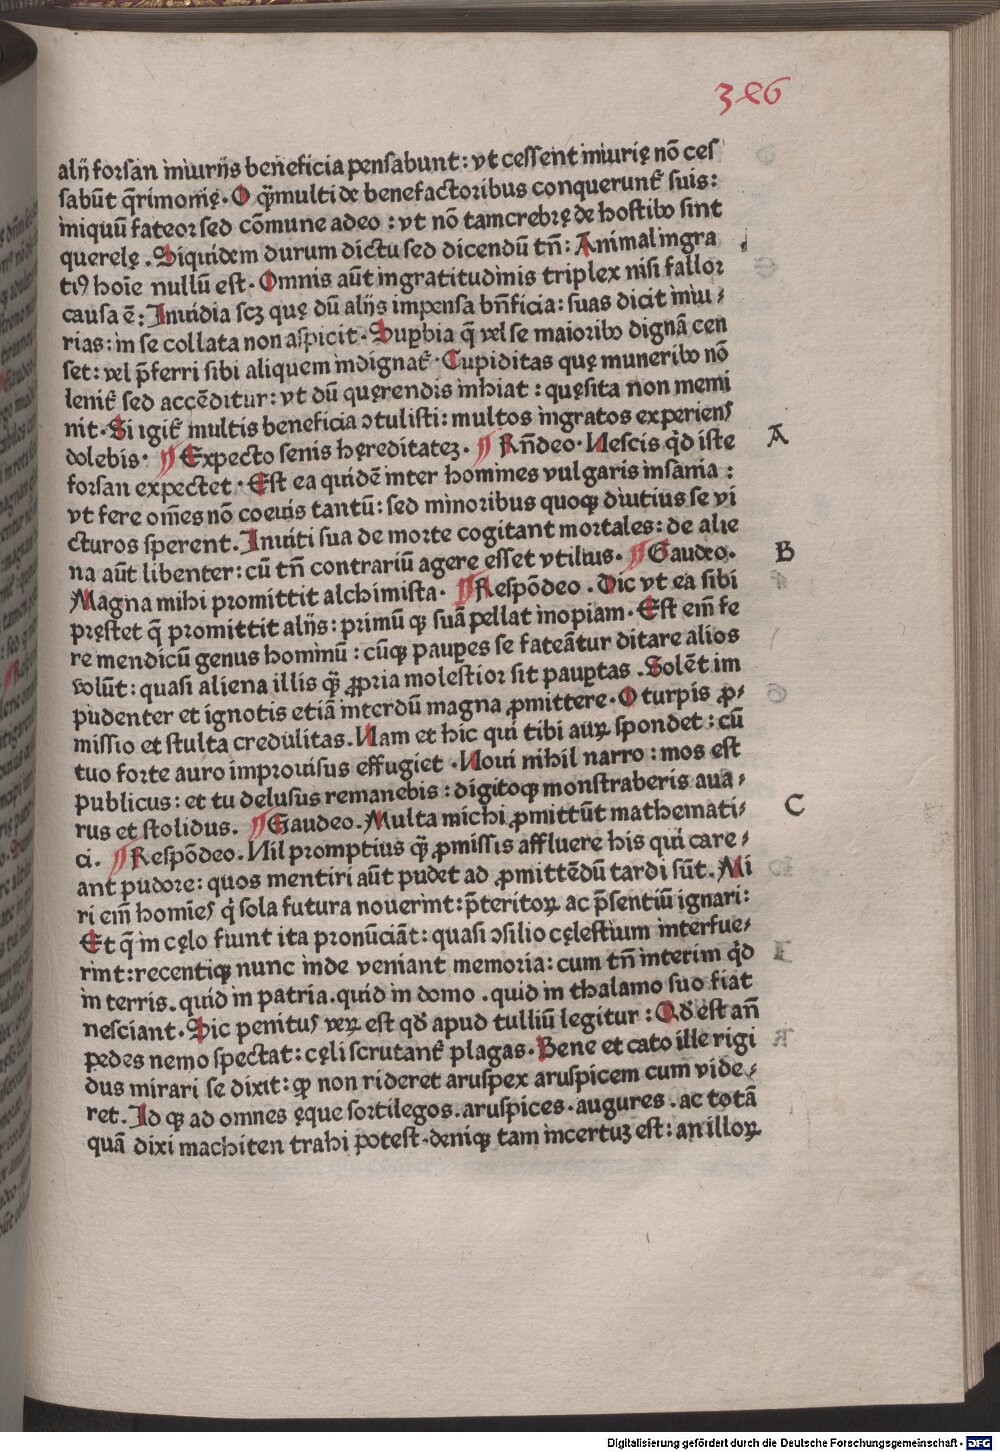 386
alij forsan iniurijs beneficia pensabunt: vt cessent iniurię nõ ces
sabũt q̃rimonię. O q̃multi de benefactoribus conquerunt᷑ suis:
iniquũ fateor sed cõmune adeo: vt nõ tamcrebrę de hostibꝰ sint
querelę. Siquidem durum dictu sed dicendũ tñ: Animal ingra
tiꝰ hoĩe nullũ est. Omnis aũt ingratitudinis triplex nisi fallor
causa ẽ: Inuidia scꝫ quę dũ alijs impensa bñficia: suas dicit iniu-
rias: in se collata non aspicit. Supꝑbia q̃ vel se maioribꝰ dignã cen
set: vel p̃ferri sibi aliquem indignat᷑. Cupiditas quę muneribꝰ nõ
lenit᷑ sed accẽditur: vt dũ quęrendis inhiat: quęsita non memi
nit. Si igit᷑ multis beneficia ꝯtulisti: multos ingratos experiens
dolebis. ¶ Expecto senis hęreditateꝫ. ¶ Rñdeo. Nescis q̇d iste
A
forsan expectet. Est ea quidẽ inter homines vulgaris insania:
vt fere om̃es nõ coeuis tantũ: sed minoribus quoqꝫ diutius se vi
cturos sperent. Inuiti sua de morte cogitant mortales: de alie
na aũt libenter: cũ tñ contrariũ agere esset vtilius. ¶ Gaudeo.
B
Magna mihi promittit alchimista. ¶ Respõdeo. Dic vt ea sibi
pręstet q̃ promittit alijs: primũ qꝫ suã pellat inopiam. Est em̃ fe
re mendicũ genus hominũ: cũqꝫ pauꝑes se fateãtur ditare alios
volũt: quasi aliena illis q̃ꝫ ꝓpria molestior sit pauꝑtas. Solẽt im
pudenter et ignotis etiã interdũ magna ꝓmittere. O turpis ꝓ-
missio et stulta credulitas. Nam et hic qui tibi auꝝ spondet: cũ
tuo forte auro improuisus effugiet. Noui nihil narro: mos est
publicus: et tu delusus remanebis: digitoqꝫ monstraberis aua-
rus et stolidus. ¶ Gaudeo. Multa michi ꝓmittũt mathemati-
C
ci. ¶ Respõdeo. Nil promptius q̃ꝫ ꝓmissis affluere his qui care-
ant pudore: quos mentiri aũt pudet ad ꝓmittẽdũ tardi sũt. Mi
ri em̃ homĩes q̇ sola futura nouerint: p̃teritoꝝ ac p̃sentiũ ignari:
Et q̃ in cęlo fiunt ita pronũciãt: quasi ꝯsilio cęlestium interfue-
rint: recentiqꝫ nunc inde veniant memoria: cum tñ interim q̇d
in terris. quid in patria. quid in domo. quid in thalamo suo fiat
nesciant. Sic penitus veꝝ est qd̃ apud tulliũ legitur: Qd̃ est añ
ꝑedes nemo spectat: cęli scrutant᷑ plagas. Bene et cato ille rigi
dus mirari se dixit: ꝙ non rideret aruspex aruspicem cum vide-
ret. Id qꝫ ad omnes ęque sortilegos. aruspices. augures. ac totã
quã dixi machiten trahi potest. deniqꝫ tam incertuꝫ est: an illoꝝ
Digitalisierung gefördert durch die Deutsche Forschungsgemeinschaft - DFG